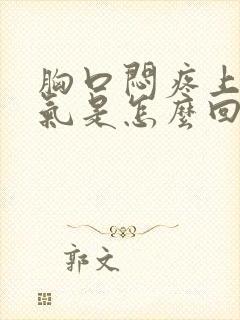 胸口悶疼上
氣是怎麼回
郭文